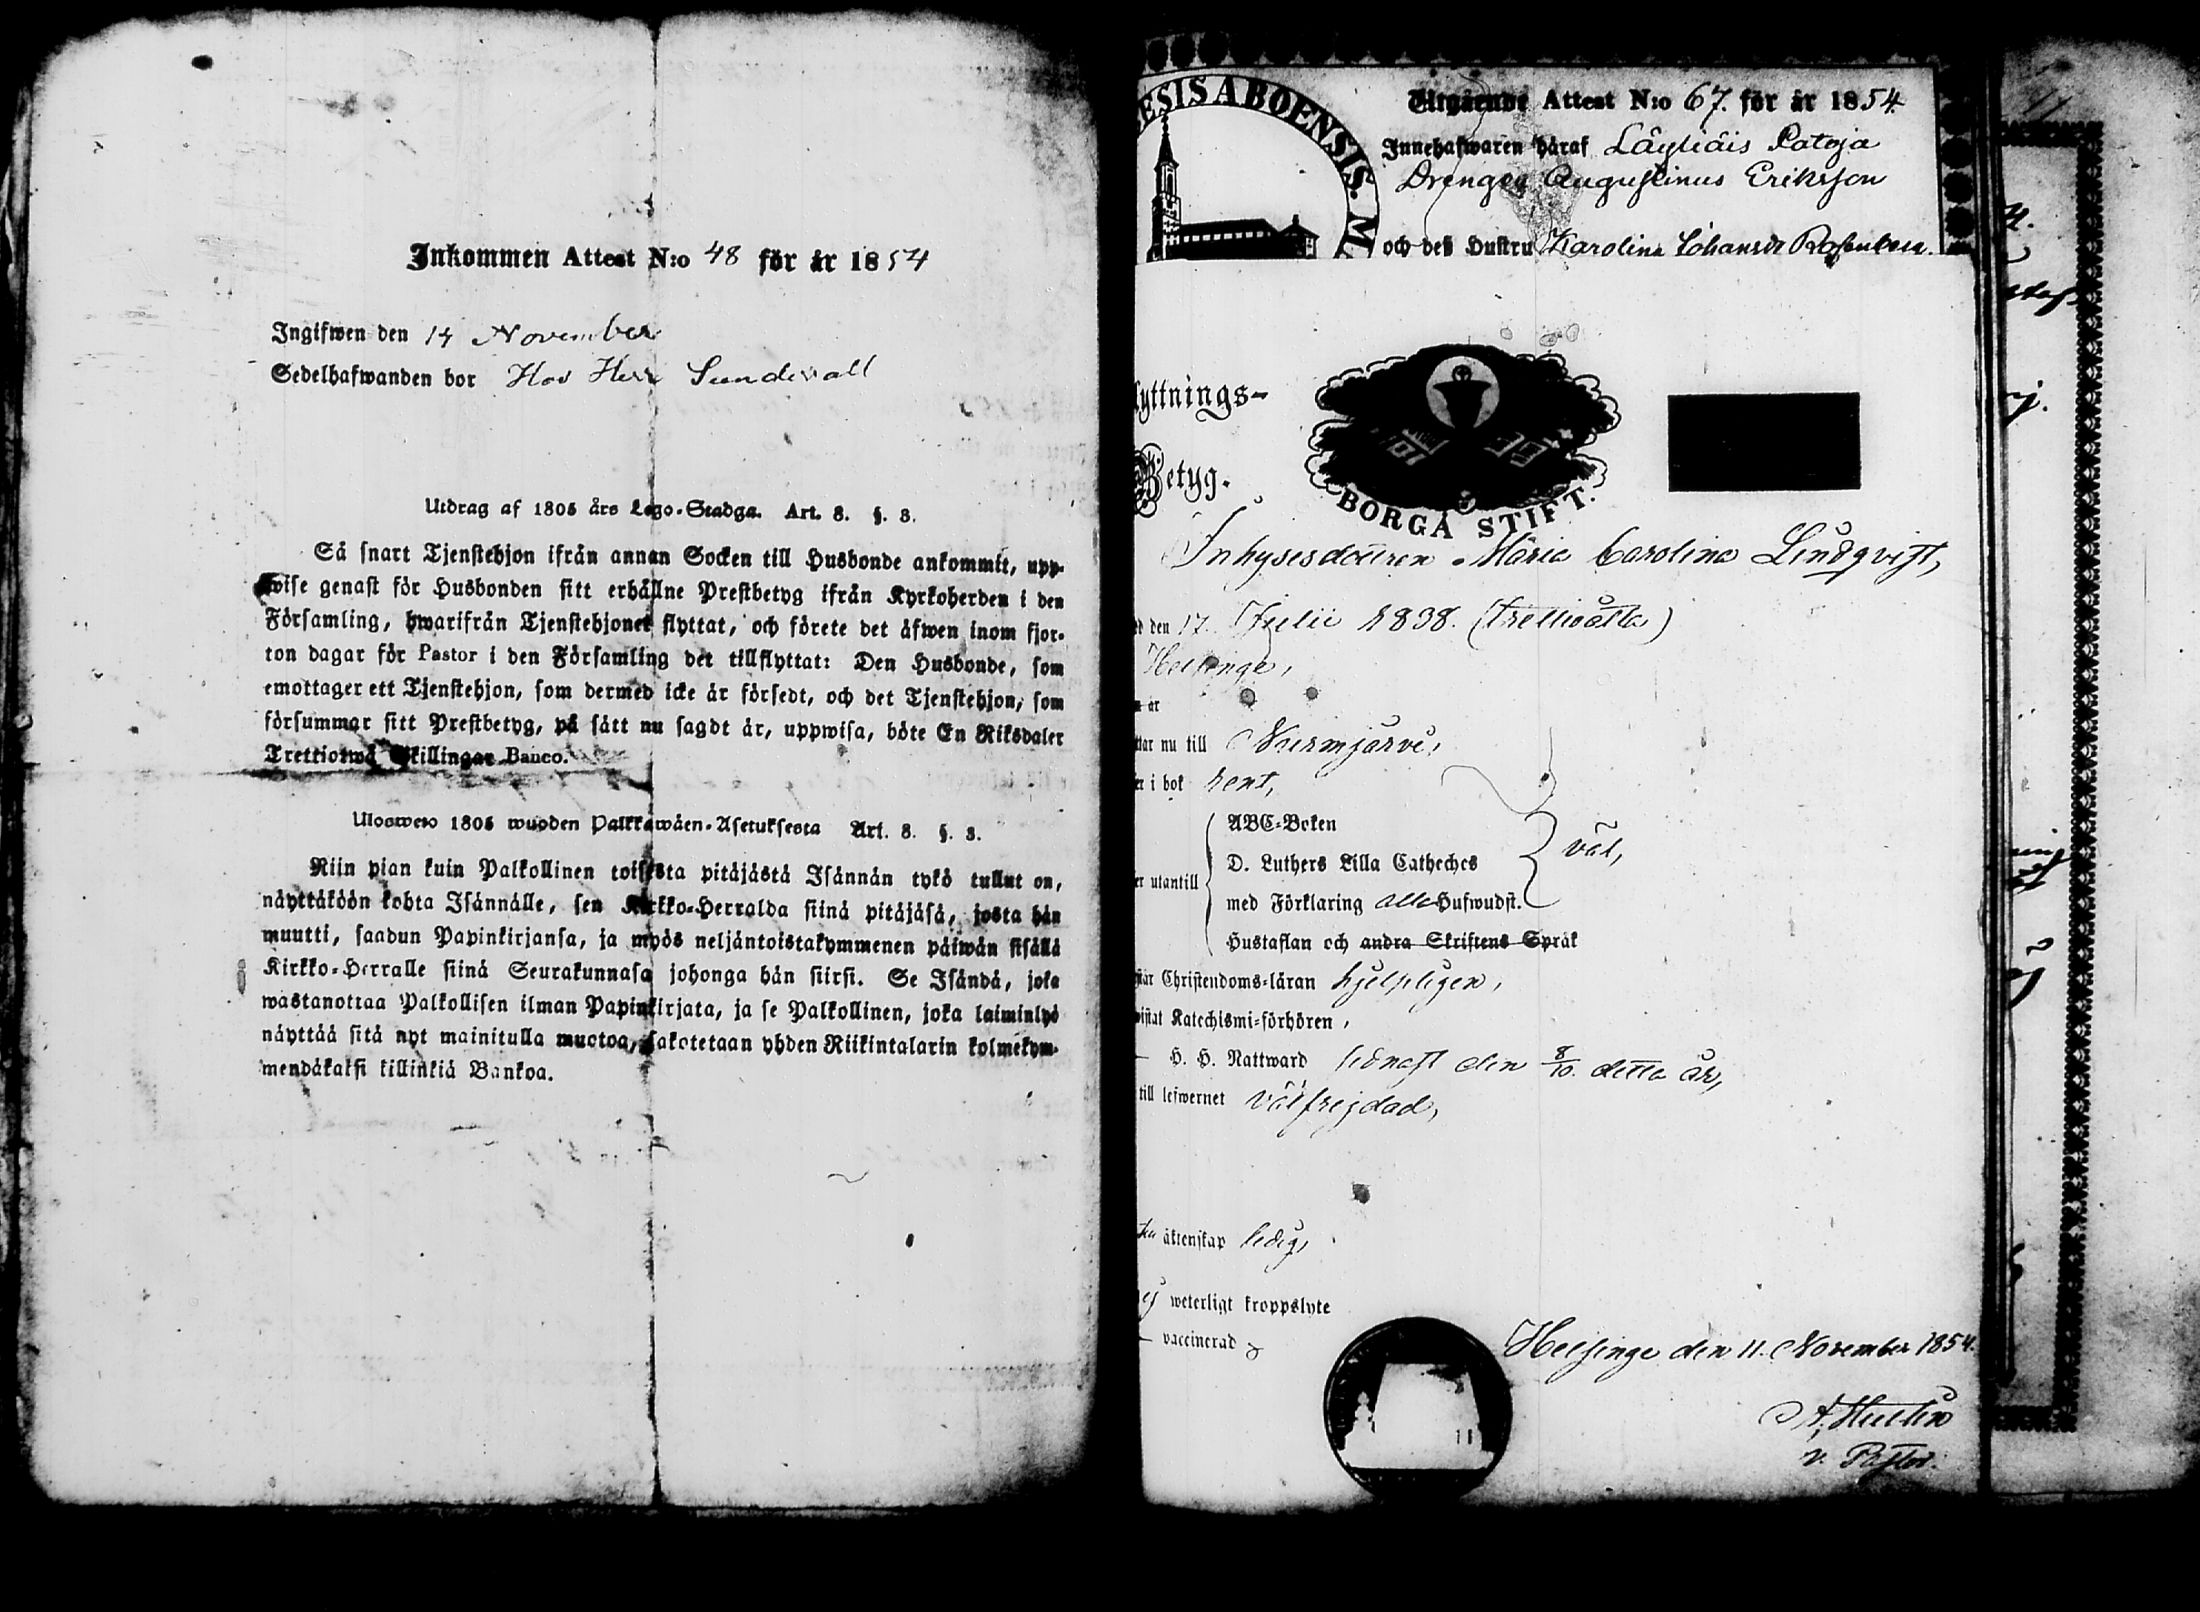 Inkommen Attest N:o 48 för år 1854
Ingifwen den 14 November
Sedelhafwanden bor Hos Herr Sundvall
Utdrag af 1805 års Lego-Stadga. Art. 8. §. 3.
Så snart Tjenstehjon ifrån annan Socken till Husbonde ankommit, upp-
wise genast för Husbonden sitt erhållne Prestbetyg ifrån Kyrkoherden i den
Församling, hwarifrån Tjenstehjonet flyttat, och förete det äfwen inom fjor-
ton dagar för Pastor i den Församling det tillflyttat: Den Husbonde, som
emottager ett Tjenstehjon, som dermed icke är försedt, och det Tjenstehjon, som
försummar sitt Prestbetyg, på sätt nu sagdt är, uppwisa, böte En Riksdaler
Trettiotwå Skillingar Banco.
Ulosweto 1805 wuoden Palkkawäen-Asetuksesta Art. 8. §. 3.
Niin pian kuin Palkollinen toisesta pitäjästä Isännän tykö tullut on,
näyttäköön kohta Isännälle, sen Kirkko-Herralda siinä pitäjäsä, josta hän
muutti, saadun Papinkirjansa, ja myös neljäntoistakymmenen päiwän sisällä
Kirkko-Herralle siinä Seurakunnasa johonga hän siirsi. Se Isändä, joka
wastanottaa Palkollisen ilman Papinkirjata, ja se Palkollinen, joka laiminlyö
näyttää sitä nyt mainitulla muotoa, sakotetaan yhden Riikintalarin kolmekym-
mendäkaksi killinkiä Bankoa.
ESIS ABOENSIS. M
Utgående Attest N:o 67. för år 1854.
Innehafwaren häraf Löyliäis Patoja
Drengen Augustinus Eriksson
och deß Hustru Karolina Johansdr
yttnings-
Betyg.
BORGÅ STIFT.
Inhysesdottren Maria Carolina Lindqvist,
d den 17. Julii 1838. (trettioåtta)
Helsinge,
är
tar nu till Nurmijärvi,
er i bok rent,
ABC-Boken
D. Luthers Lilla Catheches väl,
er utantill
med Förklaring alla Hufwudst.
Hustaflan och andra Skriftens Språk
står Christendoms-läran hjelpligen,
wistat Katechismi-förhören,
H. H. Nattward sednast den 8/10. detta år,
till lefwernet välfrejdad,
äktenskap ledig,
ej weterligt kroppslyte
vaccinerad
Helsinge den 11. November 1854.
v. Pastor.